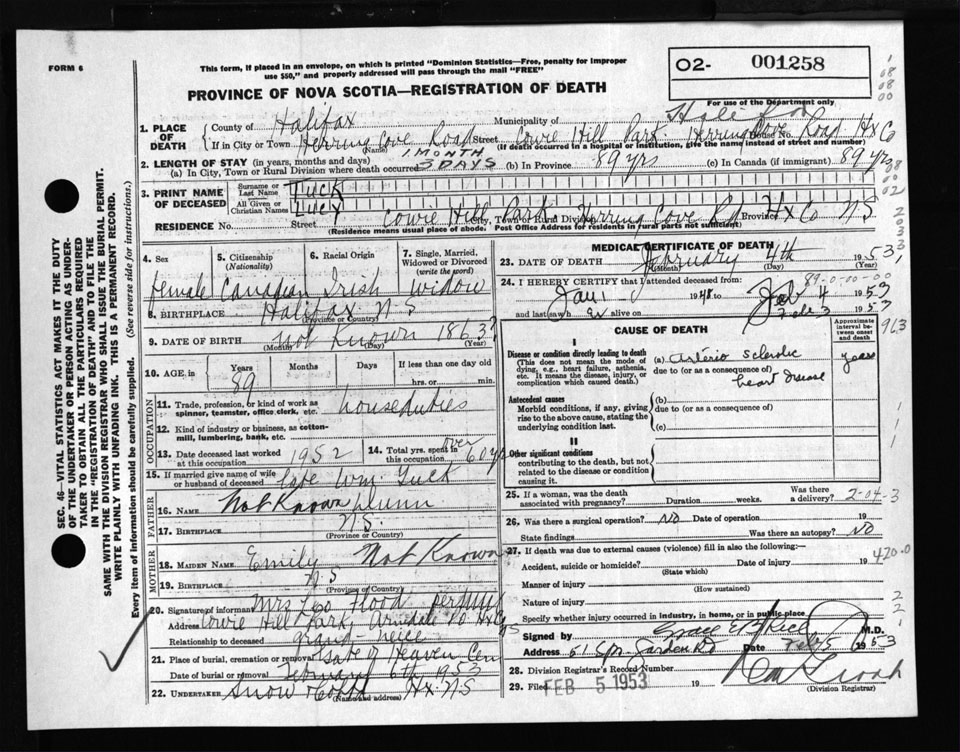 FORM 6
This form, if placed in an envelope, on which is printed "Dominion Statistics—Free, penalty for improper
use $50," and properly addressed will pass through the mail "FREE"
O2- 001258
PROVINCE OF NOVA SCOTIA—REGISTRATION OF DEATH
For use of the Department only
1. PLACE OF DEATH
County of Halifax Municipality of Halifax
If in City or Town Herring Cove Road Street Cowie Hill Park Herring Cove Road Hx Co
(Name) (If death occurred in a hospital or institution, give the name instead of street and number)
2. LENGTH OF STAY (in years, months and days)
(a) In City, Town or Rural Division where death occurred 1 MONTH 3 DAYS (b) In Province 89 yrs (c) In Canada (if immigrant) 89 yrs
3. PRINT NAME OF DECEASED
Surname or Last Name TUCK
All Given or Christian Names LUCY
RESIDENCE No. Street Cowie Hill Park City, Town or Rural Division Herring Cove Rd Province Hx Co N S
(Residence means usual place of abode. Post Office Address for residents in rural parts not sufficient)
4. Sex female
5. Citizenship (Nationality) Canadian
6. Racial Origin Irish
7. Single, Married, Widowed or Divorced (write the word) Widow
8. BIRTHPLACE Halifax N-S
(Province or Country)
9. DATE OF BIRTH Not Known 1863?
(Month) (Day) (Year)
10. AGE in Years 89 Months Days If less than one day old
hrs. or min.
OCCUPATION
11. Trade, profession, or kind of work as spinner, teamster, office clerk, etc. houseduties
12. Kind of industry or business, as cotton-mill, lumbering, bank, etc.
13. Date deceased last worked at this occupation 1952
14. Total yrs. spent in this occupation over 60 yrs
15. If married give name of wife or husband of deceased late Wm Tuck
FATHER
16. NAME Not Known Dunn
17. BIRTHPLACE N.S.
(Province or Country)
MOTHER
18. MAIDEN NAME Emily Not Known
19. BIRTHPLACE N S
(Province or Country)
20. Signature of informant Mrs Leo Flood
Address Cowie Hill Park, Armdale PO Hx Co NS
Relationship to deceased grand-neice
21. Place of burial, cremation or removal Gate of Heaven Cem
Date of burial or removal February 6th 1953
22. UNDERTAKER Snow & Co Hx-NS
(Name and address)
MEDICAL CERTIFICATE OF DEATH
23. DATE OF DEATH February 4th 1953
(Month) (Day) (Year)
24. I HEREBY CERTIFY that I attended deceased from: 89-0-00-00
Jan 1 1948 to Feb 4 1953
and last saw h er alive on Feb 3 1953
CAUSE OF DEATH
Approximate interval between onset and death
I
Disease or condition directly leading to death
(This does not mean the mode of dying, e.g., heart failure, asthenia, etc. It means the disease, injury, or complication which caused death.)
(a) Arterio sclerotic years
due to (or as a consequence of) heart disease
Antecedent causes
Morbid conditions, if any, giving rise to the above cause, stating the underlying condition last.
(b)
due to (or as a consequence of)
(c)
II
Other significant conditions
contributing to the death, but not related to the disease or condition causing it.
25. If a woman, was the death associated with pregnancy? Duration weeks. Was there a delivery? 2-04-3
26. Was there a surgical operation? No Date of operation 19
State findings Was there an autopsy? No
27. If death was due to external causes (violence) fill in also the following:—
Accident, suicide or homicide? Date of injury 19 420.0
(State which)
Manner of injury
(How sustained)
Nature of injury
Specify whether injury occurred in industry, in home, or in public place
Signed by Grace E B Rice M.D.
Address 51 Spr. Garden Rd Date Feb 5 1953
28. Division Registrar's Record Number
29. Filed FEB 5 1953
(Division Registrar)
SEC. 46—VITAL STATISTICS ACT MAKES IT THE DUTY
OF THE UNDERTAKER OR PERSON ACTING AS UNDER-
TAKER TO OBTAIN ALL THE PARTICULARS REQUIRED
IN THE "REGISTRATION OF DEATH" AND TO FILE THE
SAME WITH THE DIVISION REGISTRAR WHO SHALL ISSUE THE BURIAL PERMIT.
WRITE PLAINLY WITH UNFADING INK. THIS IS A PERMANENT RECORD.
Every item of information should be carefully supplied. (See reverse side for instructions.)